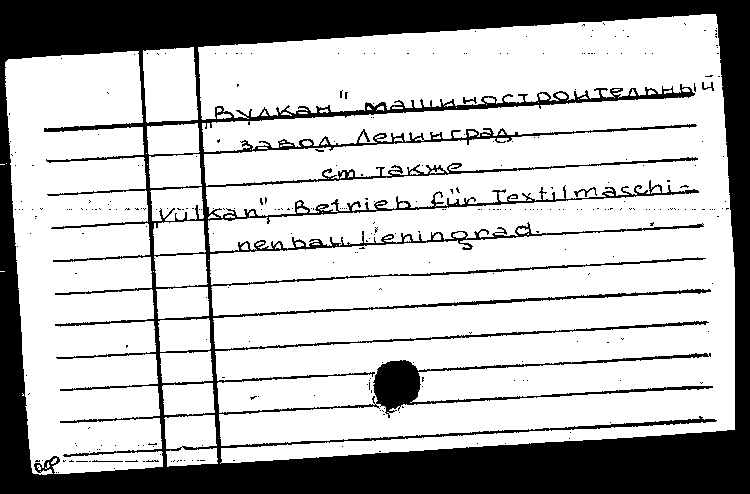 „Вулкан", машиностроительный
завод. Ленинград.
см. также
„Vulkan", Betrieb für Textilmaschi-
nenbau. Leningrad.